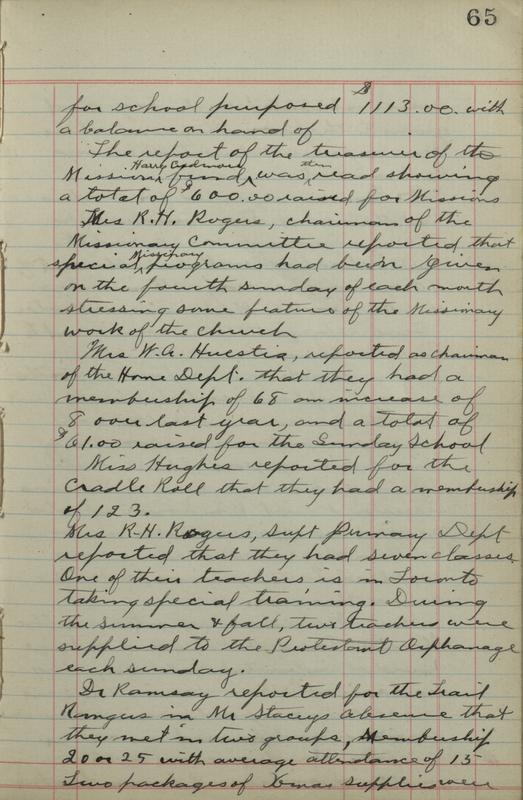 65
for school purposed $1113.00. with
a balance on hand of
The report of the treasurer of the
Missions fund, Harry Cadmore was then read showing
a total of $600.00 raised for Missions
Mrs R.H. Rogers, chairman of the
Missionary Committee reported that
special Missionary programs had been given
on the fourth sunday of each month
stressing some feature of the Missionary
work of the church
Mrs W.A. Huestis, reported as chairman
of the Home Dept. that they had a
membership of 68 an increase of
8 over last year, and a total of
$61.00 raised for the Sunday School
Miss Hughes reported for the
Cradle Roll that they had a membership
of 123.
Mrs R-H. Rogers, Supt Primary Dept
reported that they had seven classes.
One of their teachers is in Toronto
taking special training. During
the summer & fall, two teachers were
supplied to the Protestant Orphanage
each sunday.
Dr Ramsay reported for the Trail
Rangers in Mr Stacey's absence that
they met in two groups, Membership
20 or 25 with average attendance of 15
Two packages of Xmas supplies were